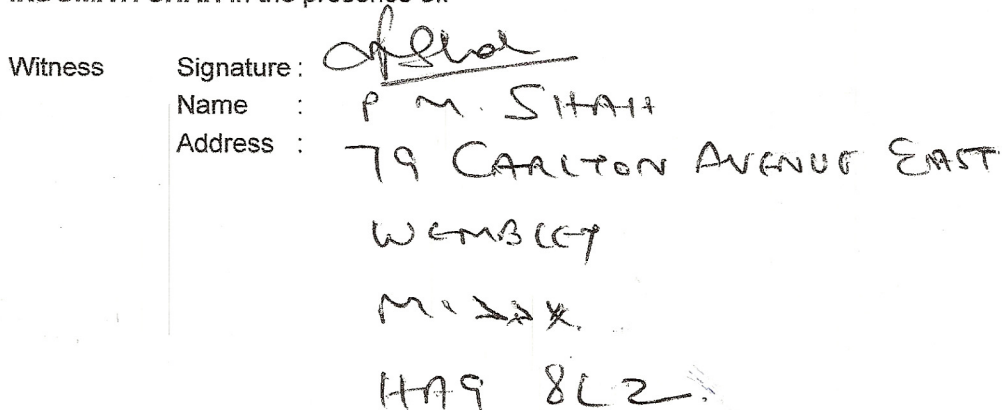 in the presence of:
Witness Signature :
Name : P M. SHAH
Address : 79 CARLTON AVENUE EAST
WEMBLEY
MIDDX.
HA9 8LZ.